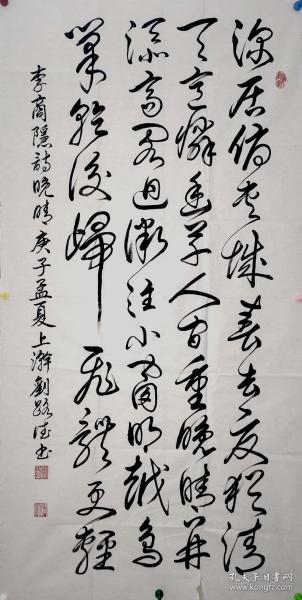 深居俯夹城春去夏犹清
天意憐幽草人间重晚晴并
添高阁迥微注小窗明越鸟
巢乾後歸飛體更輕
李商隱詩晚晴庚子孟夏上澣劉路德书
孔夫子旧书网
www.kongfz.com